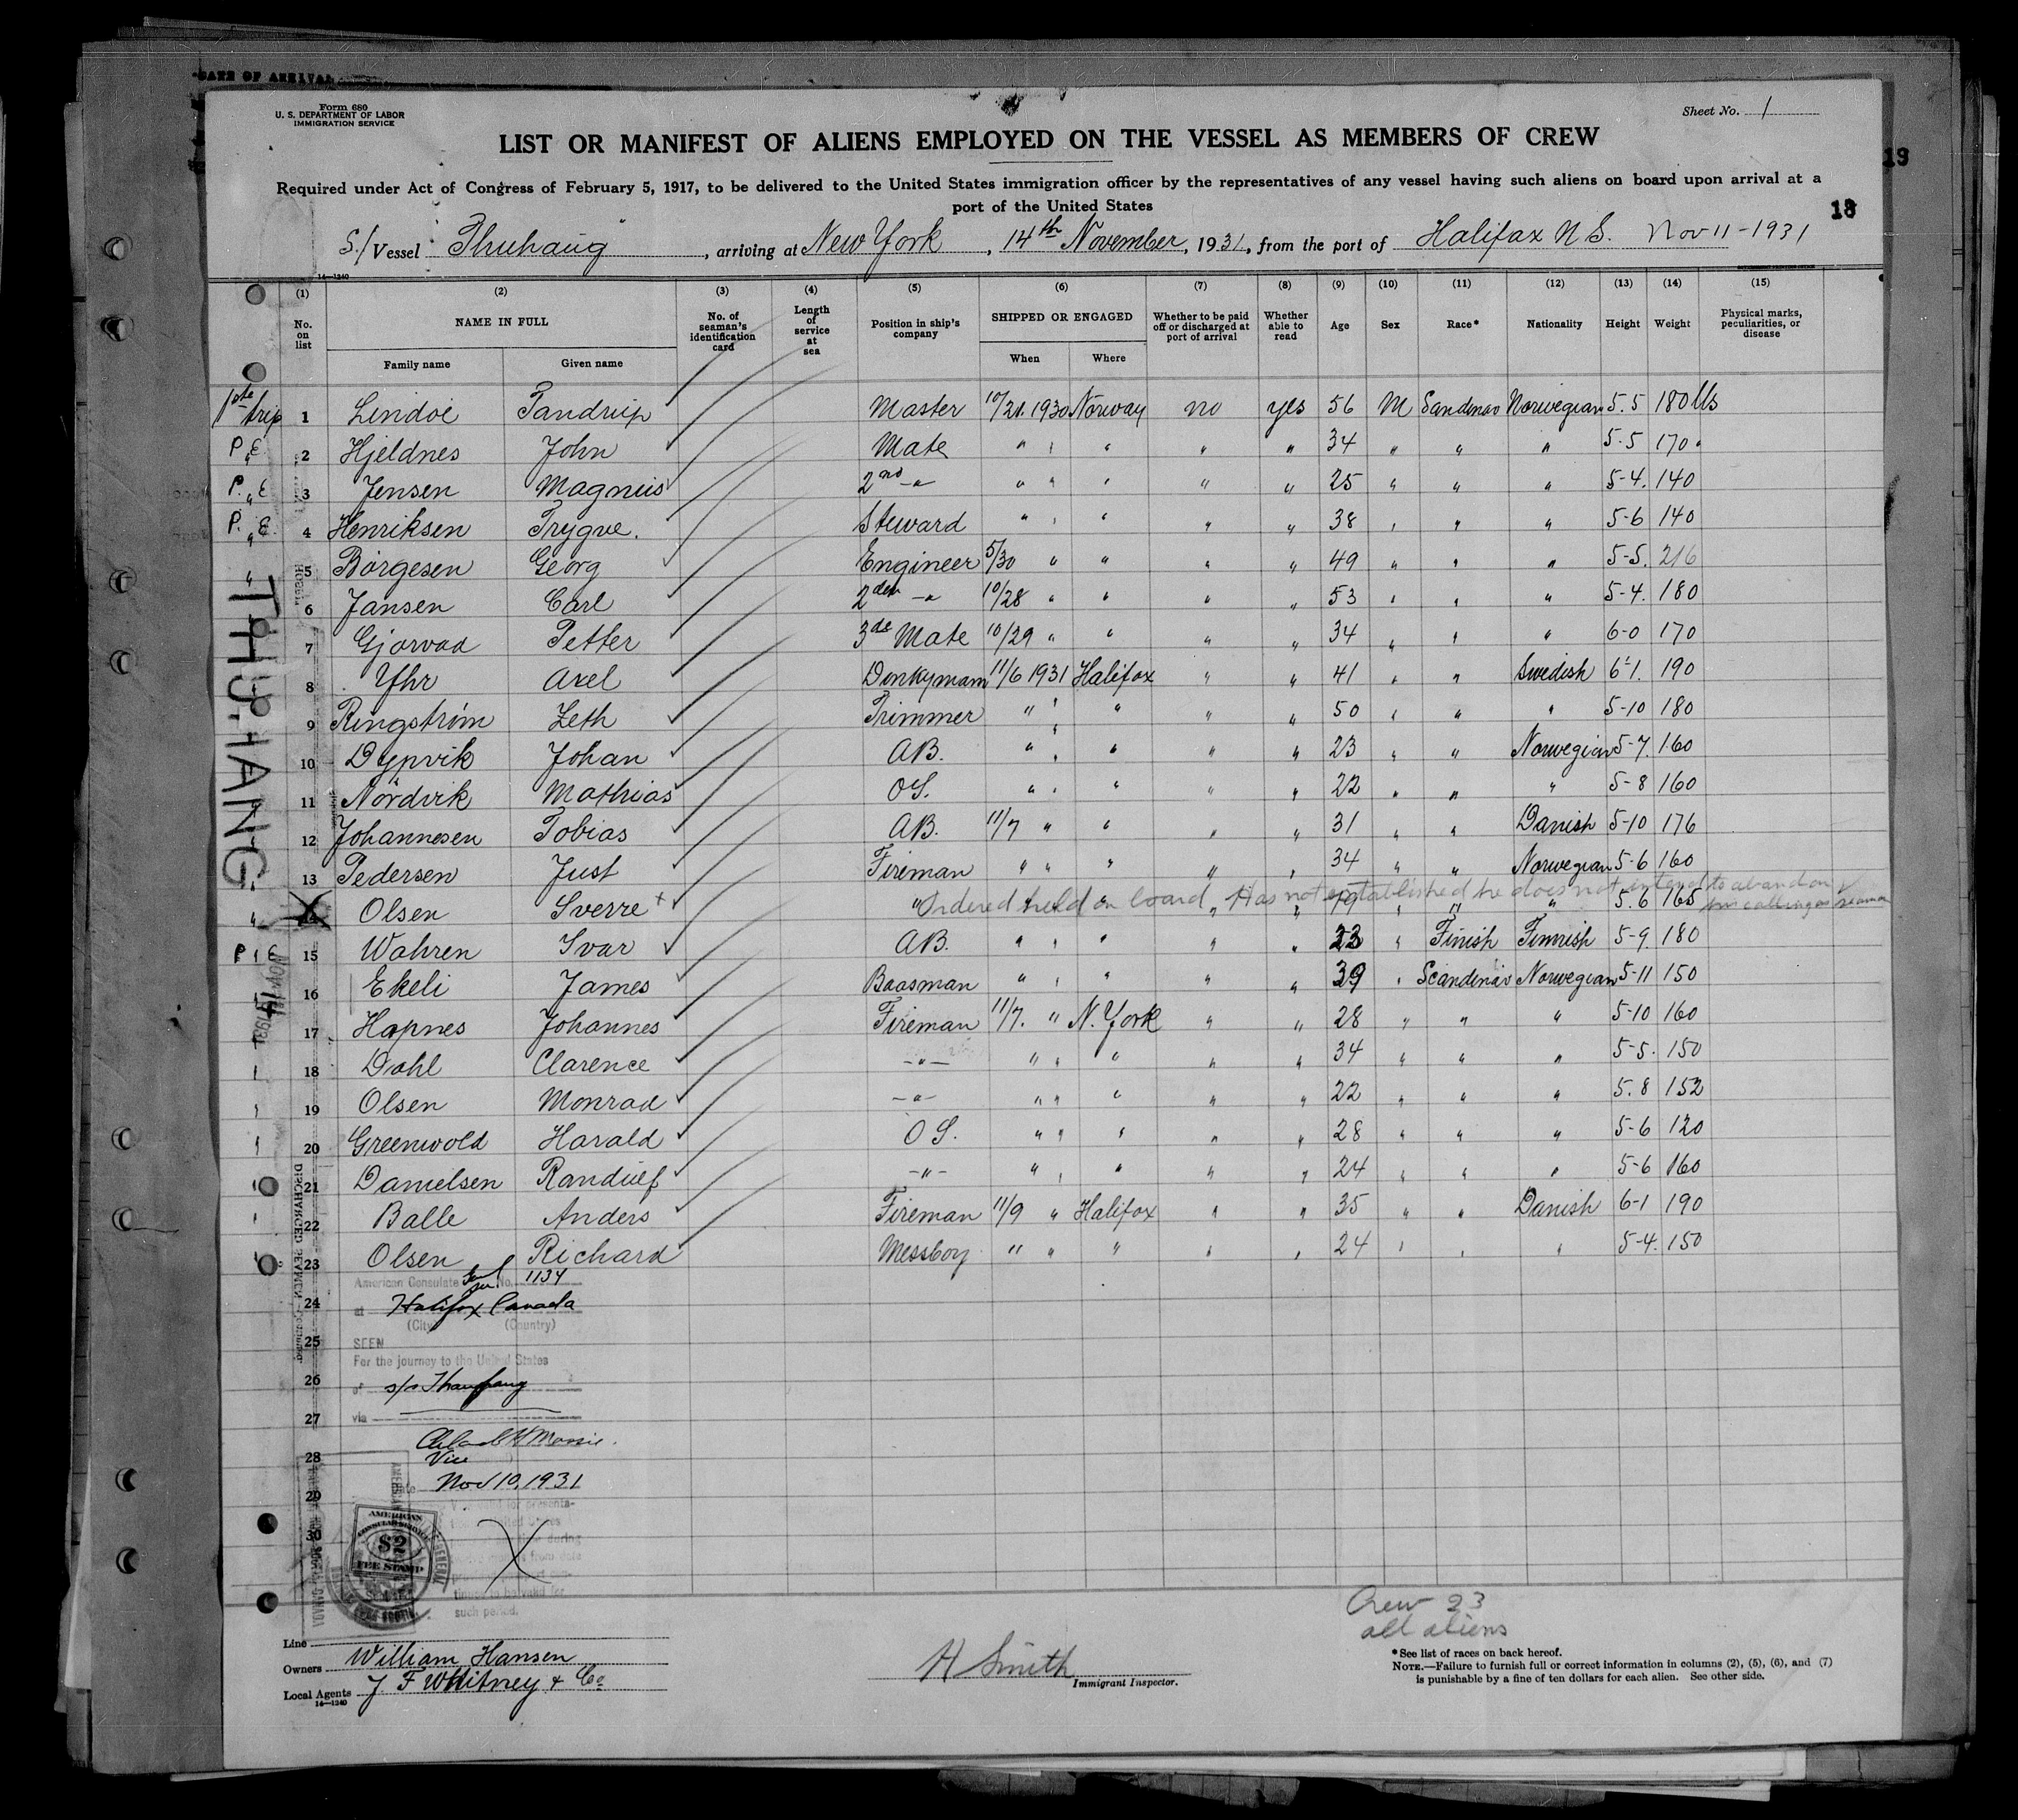 DATE OF ARRIVAL
Form 680
U. S. DEPARTMENT OF LABOR
IMMIGRATION SERVICE
Sheet No. 1
LIST OR MANIFEST OF ALIENS EMPLOYED ON THE VESSEL AS MEMBERS OF CREW
19
Required under Act of Congress of February 5, 1917, to be delivered to the United States immigration officer by the representatives of any vessel having such aliens on board upon arrival at a
port of the United States
18
S./ Vessel "Thuhaug", arriving at New York, 14th November, 1931, from the port of Halifax N S. Nov 11-1931
14—1240
(1) (2) (3) (4) (5) (6) (7) (8) (9) (10) (11) (12) (13) (14) (15)
No. on list NAME IN FULL No. of seaman's identification card Length of service at sea Position in ship's company SHIPPED OR ENGAGED Whether to be paid off or discharged at port of arrival Whether able to read Age Sex Race* Nationality Height Weight Physical marks, peculiarities, or disease
Family name Given name When Where
1st trip 1 Lindoe Tandrup Master 10/21. 1930 Norway no yes 56 M Scandinav Norwegian 5.5 180 lbs
P. E. 2 Hjeldnes John Mate " " " " " 34 " " " 5-5 170 "
P. E 3 Jensen Magnus 2nd -"- " " " " " 25 " " " 5-4. 140
P. E. 4 Henriksen Trygve. Steward " " " " " 38 " " " 5-6 140
" 5 Börgesen Georg Engineer 5/30 " " " " 49 " " " 5-5. 216
6 Jansen Carl 2den -"- 10/28 " " " " 53 " " " 5-4. 180
7 Gjorvad Petter 3de Mate 10/29 " " " " 34 " " " 6-0 170
8 Yhr Axel Donkyman 11/6 1931 Halifax " " 41 " " Swedish 6-1. 190
9 Ringström Zeth Trimmer " " " " " 50 " " " 5-10 180
10 Dypvik Johan AB. " " " " " 23 " " Norwegian 5-7. 160
11 Nordvik Mathias OS. " " " " " 22 " " " 5-8 160
12 Johannesen Tobias AB. 11/7 " " " " 31 " " Danish 5-10 176
13 Pedersen Just Fireman " " " " " 34 " " Norwegian 5-6 160
Ordered held on board, Has not established he does not intend to abandon his calling as seaman
" 14 Olsen Sverre + " " " " " " 19 " " " 5.6 165
P. E 15 Wahren Ivar AB. " " " " " 23 " Finish Finnish 5-9. 180
16 Ekeli James Baasman " " " " " 39 " Scandinav Norwegian 5-11 150
17 Hapnes Johannes Fireman 11/7. " N. York " " 28 " " " 5-10 160
18 Dahl Clarence -"- " " " " " 34 " " " 5-5. 150
19 Olsen Monrad -"- " " " " " 22 " " " 5.8 152
20 Greenwold Harald O S. " " " " " 28 " " " 5-6 120
21 Danielsen Randulf -"- " " " " " 24 " " " 5-6 160
22 Balle Anders Fireman 11/9 " Halifax " " 35 " " Danish 6-1 190
23 Olsen Richard Messboy " " " " " 24 " " " 5-4. 150
THUHANG
DISCHARGED SEAMEN
American Consulate Gen. No. 1134
24 at Halifax Canada
(City) (Country)
25 SEEN
For the journey to the United States
26 of s/s
27 via
28 Vice
Date Nov 10, 1931
29
30
AMERICAN
CONSULAR SERVICE
$2
FEE STAMP
such period.
Crew 23
all aliens
Line
Owners William Hansen
Local Agents J F Whitney & Co
14—1240
H Smith
Immigrant Inspector.
*See list of races on back hereof.
NOTE.—Failure to furnish full or correct information in columns (2), (5), (6), and (7)
is punishable by a fine of ten dollars for each alien. See other side.